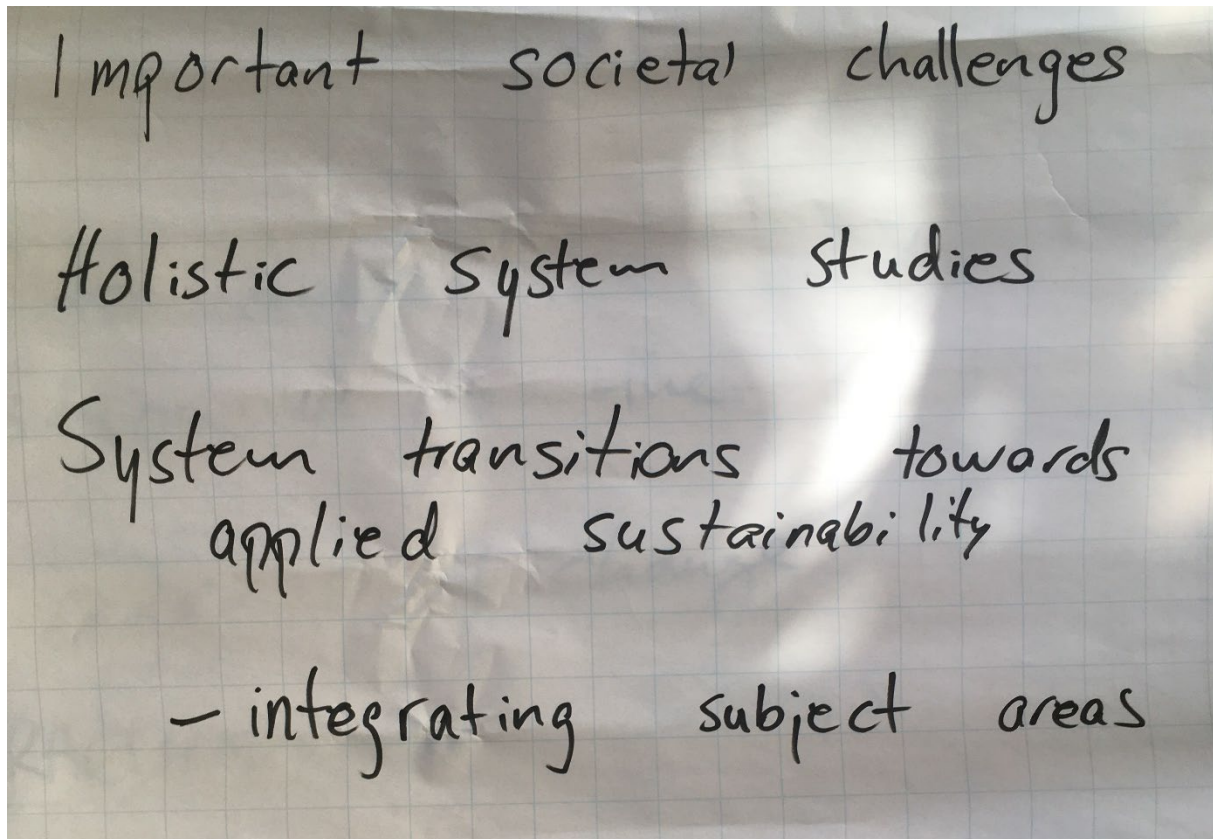 Important societal challenges
Holistic system studies
System transitions towards
applied sustainability
- integrating subject areas